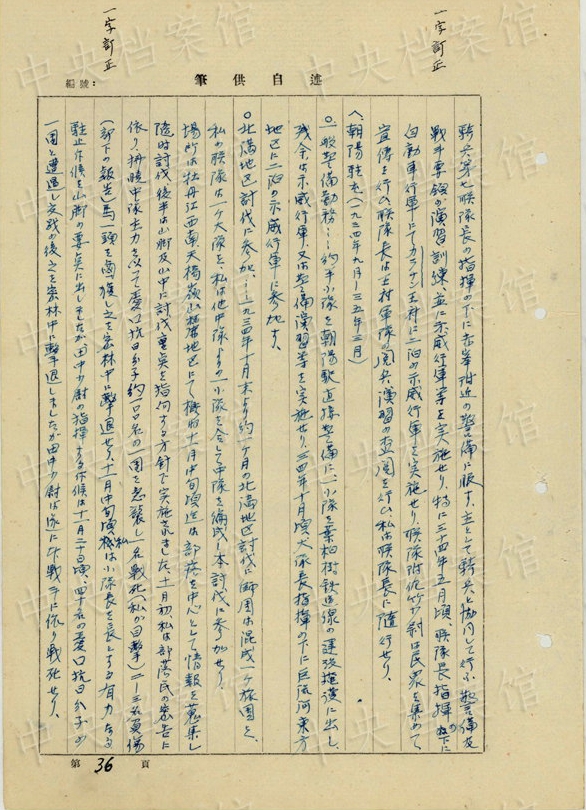 一字訂正
一字訂正
編號：
筆供自述
騎兵第七聯隊長の指揮の下に赤峯附近の警備に服す、主として騎兵と協同して行ふ警備及
戦斗専般の演習訓練、並に示威行軍等を実施せり、特に三十四年五月頃、聯隊長指揮の下に
自動車行軍にてカラチン王府に二泊の示威行軍を実施せり、聯隊附佐竹少尉は民衆を集めて、
宣傳を行ひ聯隊長は王府軍隊の閲兵、演習の查閲を行ひ私は聯隊長に随行せり。
へ、朝陽駐屯（一九三四年九月―三五年三月）
○一般警備勤務…約半小隊を朝陽駅直接警備に一小隊を葉柏樹鉄道線の建設掩護に出し、
残余は示威行軍、又は警備演習等を実施せり、三四年十月頃大隊長指揮の下に巨流河東方
地区に二泊の示威行軍に参加す。
○北満地区討伐に参加…一九三四年十月末より約一ヶ月の北満地区討伐に師団は混成一ヶ旅団を、
私の聯隊は一ヶ大隊を、私は他中隊よりの一小隊を合して中隊を編成し本討伐に参加せり。
場所は牡丹江西南天橋嶺山岳地区にて概ね十一月中旬頃迄は部落を中心として情報を蒐集し
随時討伐、後半は山脚及山中に討伐の重奌を指向する方針で実施されました、十一月初私は部落民の密告に
依り払暁中隊主力を以て愛口抗日分子約一〇〇名の一団を急襲し一名戦死（私が目撃）二―三名負傷
（部下の報告）馬一頭を鹵獲し之を密林中に撃退せり、十一月中旬頃私は小隊長を長とする有力なる
駐止斥候を山脚の要奌に出しましたが田中少尉の指揮する斥候は十一月二十日頃、四十名の愛口抗日分子の
一団と遭遇し交戦の後之を密林中に撃退しましたが田中少尉は遂に此戦斗に依り戦死せり。
第36頁
中央档案馆